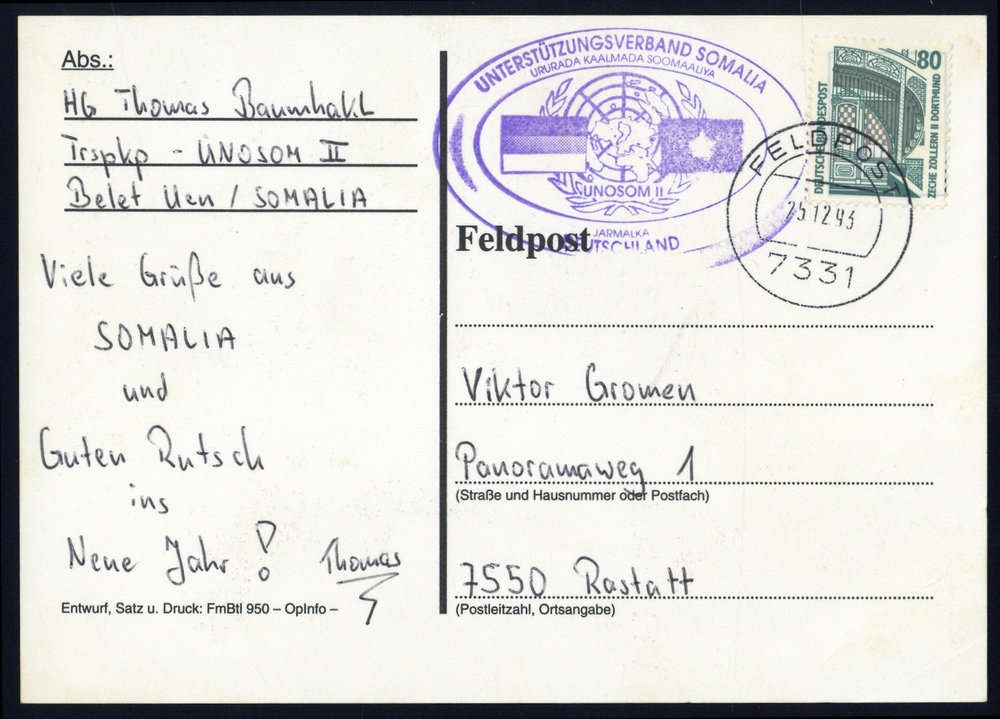 Abs.:
HG Thomas Baumhakl
Trspkp - UNOSOM II
Belet Uen / SOMALIA
Viele Grüße aus
SOMALIA
und
Guten Rutsch
ins
Neue Jahr!
Thomas
Entwurf, Satz u. Druck: FmBtl 950 – OpInfo –
UNTERSTÜTZUNGSVERBAND SOMALIA
URURADA KAALMADA SOOMAALIYA
UNOSOM II
JARMALKA
DEUTSCHLAND
80
DEUTSCHE BUNDESPOST
ZECHE ZOLLERN II DORTMUND
FELDPOST
25.12.93
7331
Feldpost
Viktor Gromen
Panoramaweg 1
(Straße und Hausnummer oder Postfach)
7550 Rastatt
(Postleitzahl, Ortsangabe)